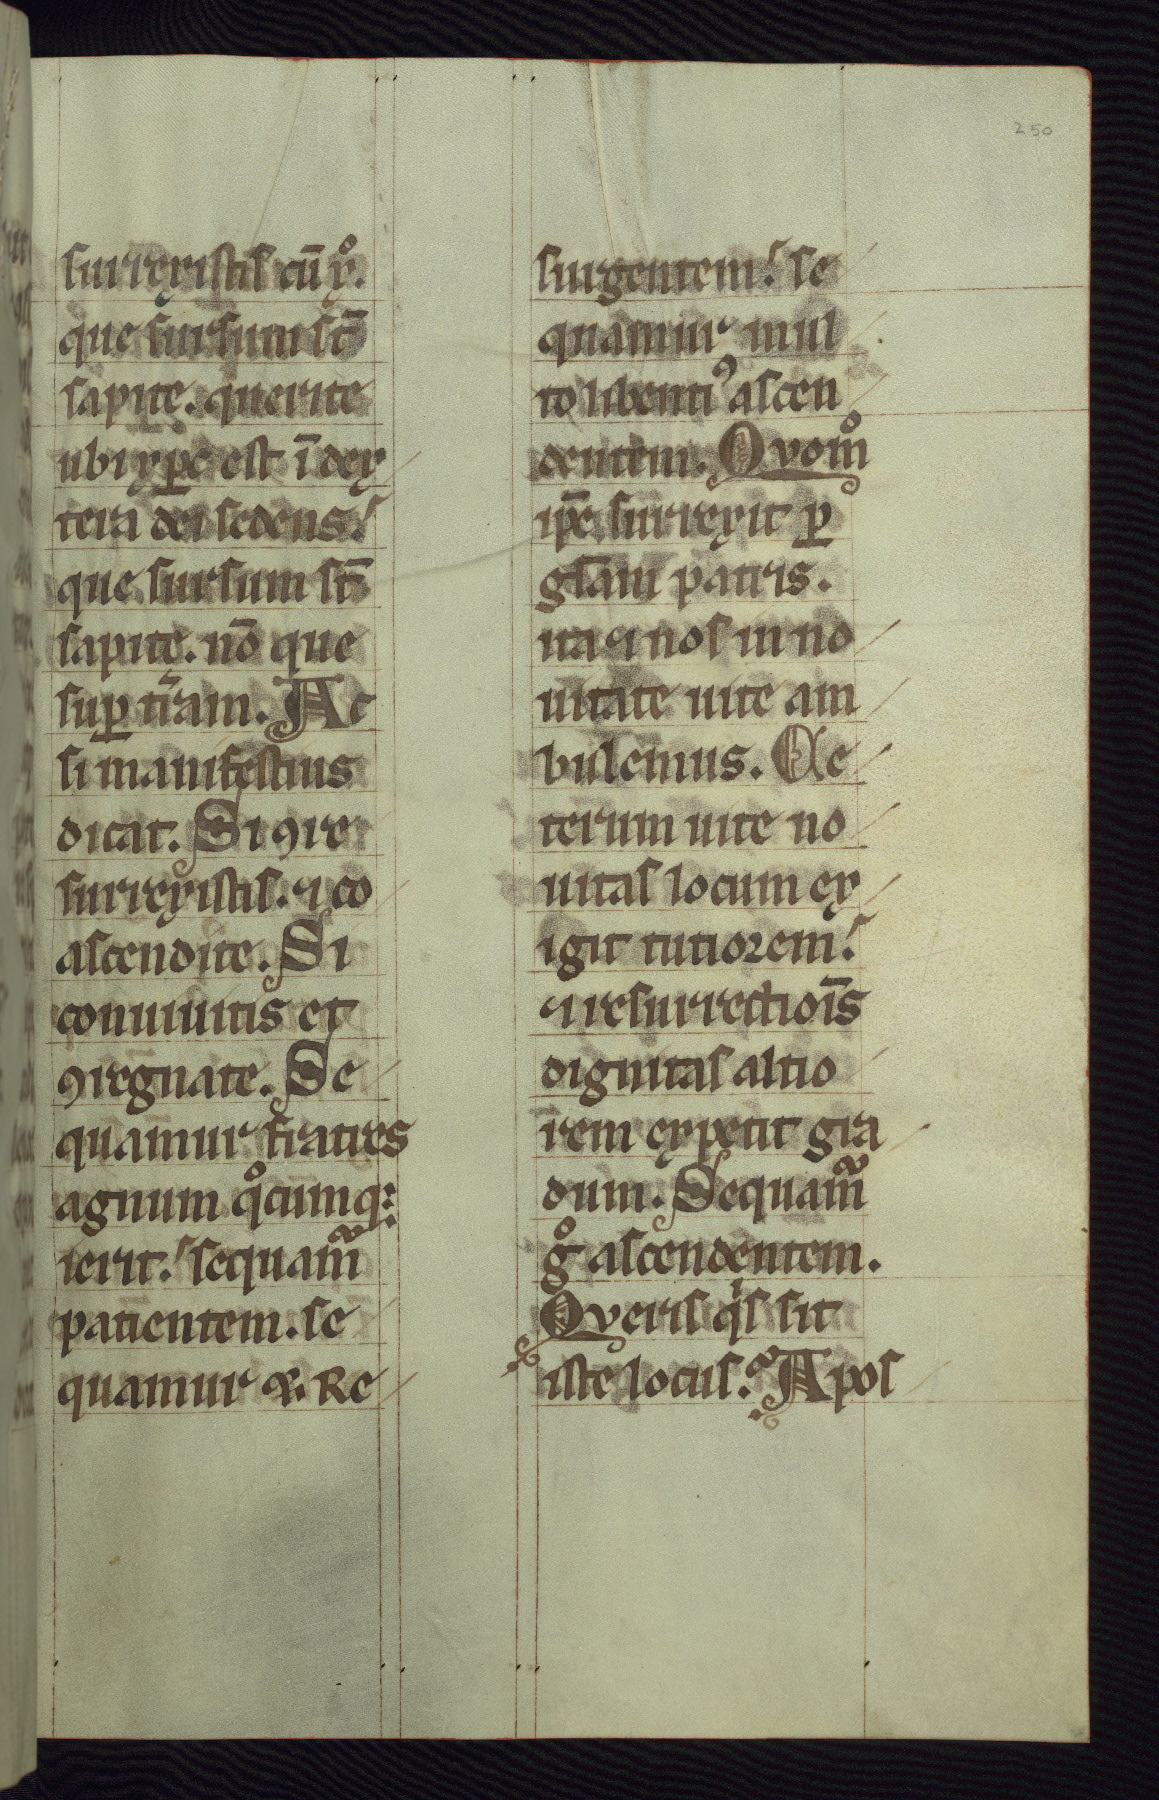 250
surrexistis cū xͦ.
que sursum st̄
sapite. querite
ubi xp̄c est ī dex
tera dei sedens:
que sursum st̄
sapite. nō que
suꝑ tr̄am. Ac
si manifestius
dicat. Si ꝯre
surrexistis. ⁊ co
ascendite. Si
conuiuitis et
ꝯregnate. Se
quamur fratres
agnum qͦcumqꝫ
ierit: sequam̃
patientem. se
quamur ⁊. Re
surgentem: se
quamur mul
to libentiꝰ ascen
dentem. Qvom̊
ip̄e surrexit ꝑ
gl̄am patris.
ita ⁊ nos in no
uitate uite am
bulemus. Ce
terum uite no
uitas locum ex
igit tutiorem:
⁊ resurrectiōis
dignitas altio
rem expetit gra
dum. Sequam̃
gͦ ascendentem.
Qveris qͥs sit
iste locus? Apos